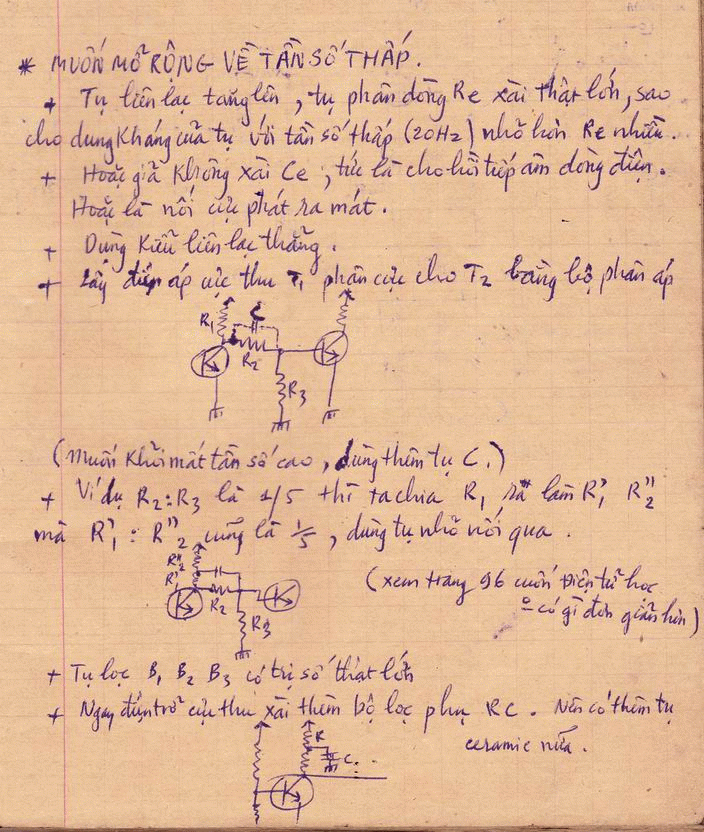 * MUỐN MỞ RỘNG VỀ TẦN SỐ THẤP.
+ Tụ liên lạc tăng lên, tụ phân dòng Re xài thật lớn, sao
cho dung kháng của tụ với tần số thấp (20Hz) nhỏ hơn Re nhiều.
+ Hoặc giả không xài Ce, tức là cho hồi tiếp âm dòng điện.
Hoặc là nối cực phát ra mát.
+ Dùng kiểu liên lạc thẳng.
+ Lấy điện áp cực thu T1 phân cực cho T2 bằng bộ phân áp
R1 C
R2
R3
(Muốn khỏi mất tần số cao, dùng thêm tụ C.)
+ Ví dụ R2:R3 là 1/5 thì ta chia R1 ra làm R'1 R''2
mà R'1 : R''2 cũng là 1/5, dùng tụ nhỏ nối qua.
R''2
R'1
R2
R3
(xem trang 96 cuốn Điện tử học
có gì đơn giản hơn)
+ Tụ lọc B1 B2 B3 có trị số thật lớn
+ Ngay điện trở cực thu xài thêm bộ lọc phụ RC. Nên có thêm tụ
ceramic nữa.
R
C